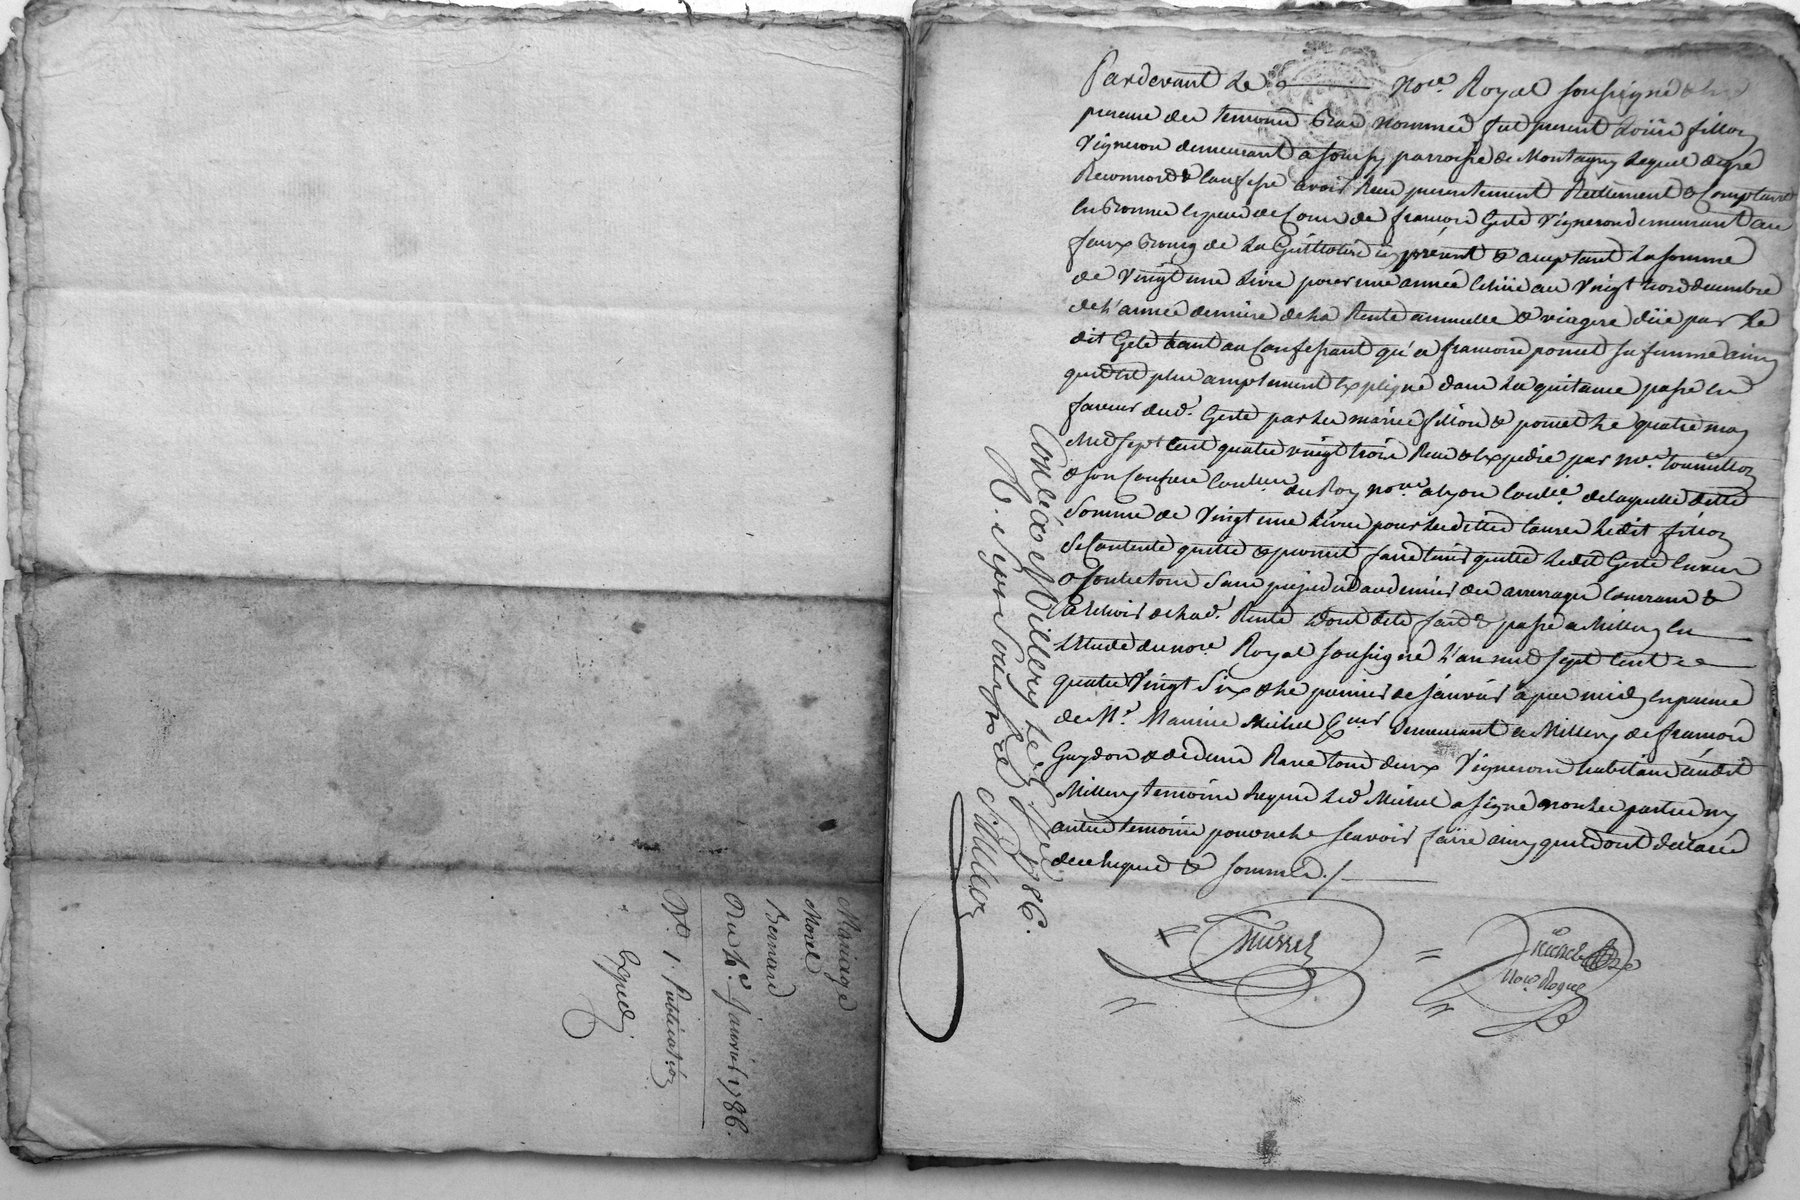 Mariage
Morel
Bernard
Du 1er Janvier 1786.
No. 1. Publication
Expedié
Pardevant Le Nore. Royal soussigné & en
presence des temoins bas nommés fut present Loüis fillon
Vigneron demeurant a sourzy parroisse de Montagny Lequel de gré
Reconnoit & Confesse avoir Reçu presentement Réellement & Comptant
En bonne espece de Cours de françois Geste Vigneron demeurant au
faux bourg de La Guillotiere icy présent & acceptant La somme
de Vingt une Livre pour une année Echüe au Vingt trois decembre
de L'année derniere de La Rente annuelle & viagere düe par Le
dit Geste tant au Confessant qu'a françoise pomet sa femme ainsy
qu'il est plus amplement Expliqué dans La quittance passé En
faveur dud. Geste par Les mariés fillon & pomet Le quatre may
Mil sept Cent quatre vingt trois Reçu & Expedié par Me.
& son Confrere Conser. du Roy nore. a Lyon de laquelle ditte
Somme de Vingt une Livre pour Les dittes Causes Ledit fillon
se Contente quitte & promet faire tenir quitte Ledit Geste Envers
& Contre tous Sans prejudice au dernier des arrerages Courants &
a Echoir de Lad. Rente dont acte fait & passé a Millery En
L'Etude du nore. Royal soussigné L'an mil sept Cent
quatre Vingt Six & Le premier de Janvier apres midy En presence
de Mr. Maurice Michel demeurant a Millery de françois
Guydon & de Rave tous deux Vignerons habitans dudit
Millery temoins Requis Led. Michel a signé non Les parties ny
autres temoins pour ne Le sçavoir faire ainsy qu'ils ont déclaré
de ce Requis & sommés./.
Michel
Nore. Royal
Conlé a Millery Le 1786.
R. Sept Sous